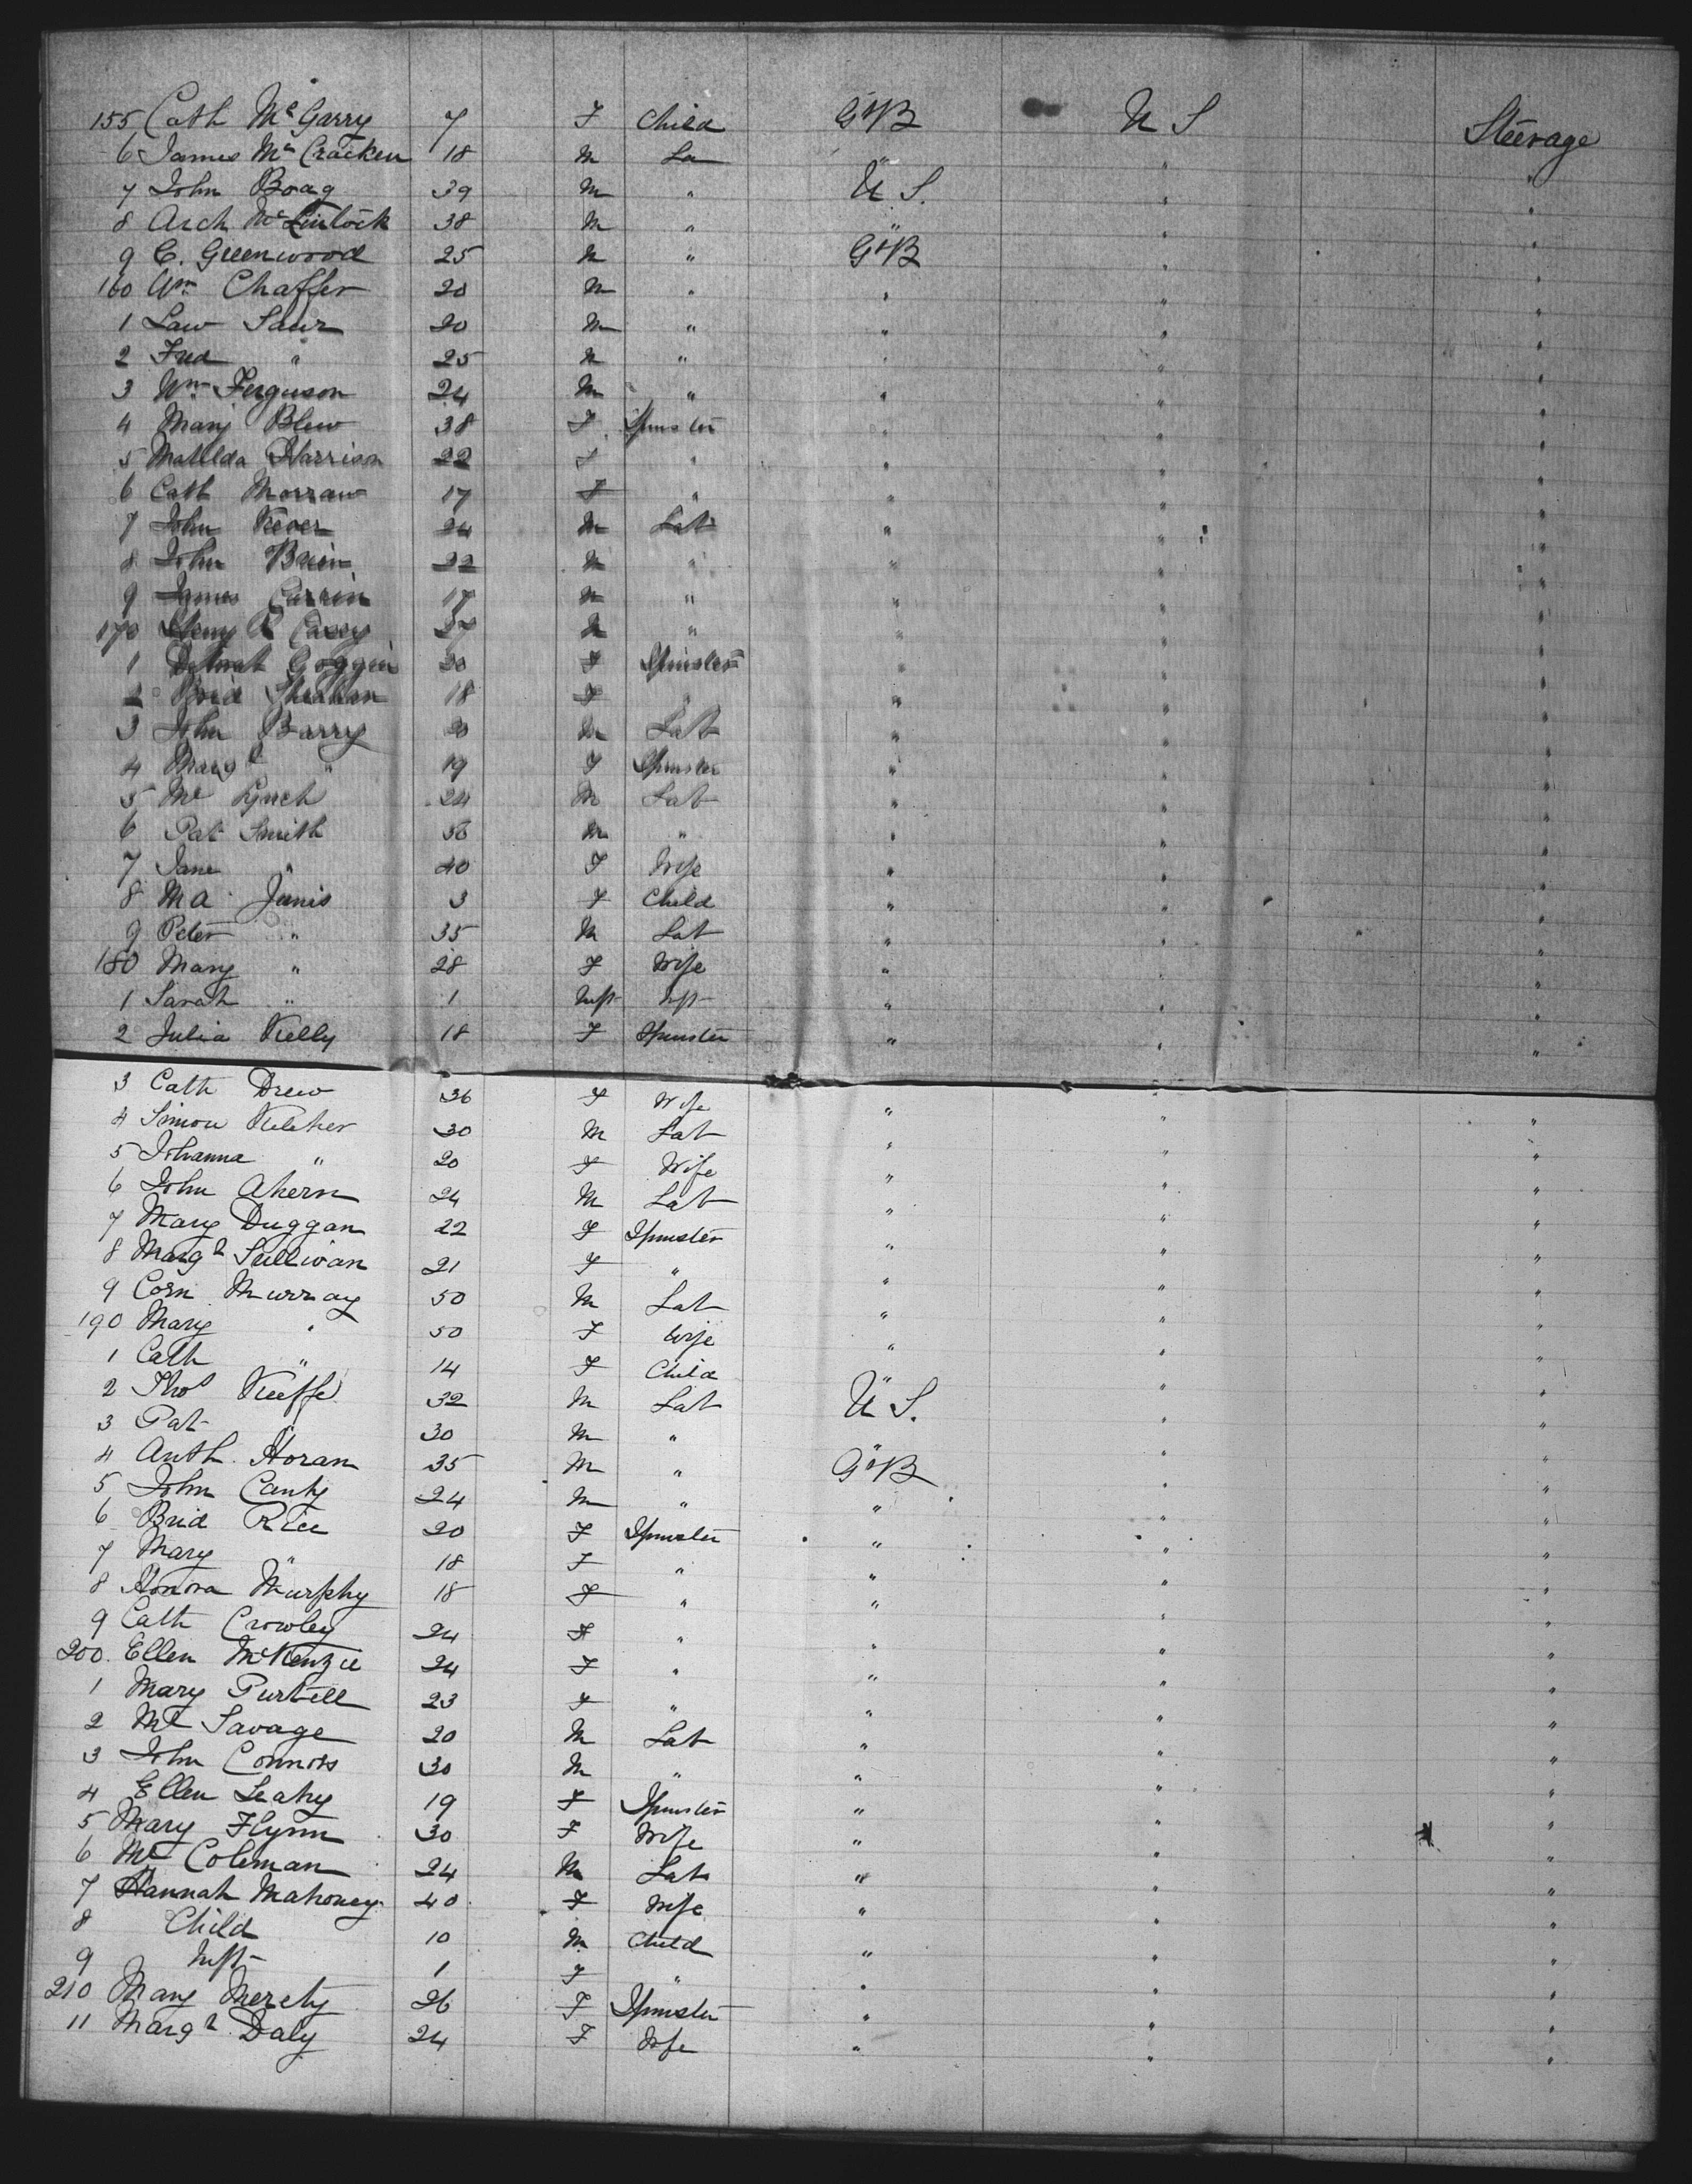 155 Cath McGarry 7 F Child G"B U S Steerage
6 James McCracken 18 M La " " "
7 John Boag 39 M " U.S. " "
8 Arch McLinlock 38 M " " " "
9 C. Greenwood 25 M " G"B " "
160 Wm Chaffer 20 M " " " "
1 Law Sawr 20 M " " " "
2 Fred " 25 M " " " "
3 Wm Ferguson 24 M " " " "
4 Mary Blew 38 F Spinster " " "
5 Matilda Harrison 22 F " " " "
6 Cath Morraw 17 F " " " "
7 John Kever 24 M Lab " " "
8 John Brien 22 M " " " "
9 James Currin 17 M " " " "
170 Henry R Casey 27 M " " " "
1 Deborah Goggin 30 F Spinster " " "
2 Brid Sheahan 18 F " " " "
3 John Barry 20 M Lab " " "
4 Margt " 19 F Spinster " " "
5 Ml Lynch 24 M Lab " " "
6 Pat Smith 50 M " " " "
7 Jane " 40 F Wife " " "
8 Ma Junis 3 F Child " " "
9 Peter " 35 M Lab " " "
180 Mary " 28 F Wife " " "
1 Sarah " 1 Inft Inft " " "
2 Julia Kelly 18 F Spinster " " "
3 Cath Drew 36 F Wife " " "
4 Simon Keleher 30 M Lab " " "
5 Johanna " 20 F Wife " " "
6 John Ahern 24 M Lab " " "
7 Mary Duggan 22 F Spinster " " "
8 Margt Sullivan 21 F " " " "
9 Corn Murray 50 M Lab " " "
190 Mary " 50 F Wife " " "
1 Cath " 14 F Child " " "
2 Thos Keeffe 32 M Lab U.S. " "
3 Pat " 30 M " " " "
4 Anth Horan 35 M " G"B " "
5 John Canty 24 M " " " "
6 Brid Rice 20 F Spinster " " "
7 Mary " 18 F " " " "
8 Honora Murphy 18 F " " " "
9 Cath Crowley 24 F " " " "
200 Ellen McKenzie 24 F " " " "
1 Mary Purtell 23 F " " " "
2 Ml Savage 20 M Lab " " "
3 John Connors 30 M " " " "
4 Ellen Leahy 19 F Spinster " " "
5 Mary Flynn 30 F Wife " " "
6 Ml Coleman 24 M Lab " " "
7 Hannah Mahoney 40 F Wife " " "
8 Child 10 M Child " " "
9 Inft 1 F " " " "
210 Mary Merety 26 F Spinster " " "
11 Margt Daly 24 F Wife " " "